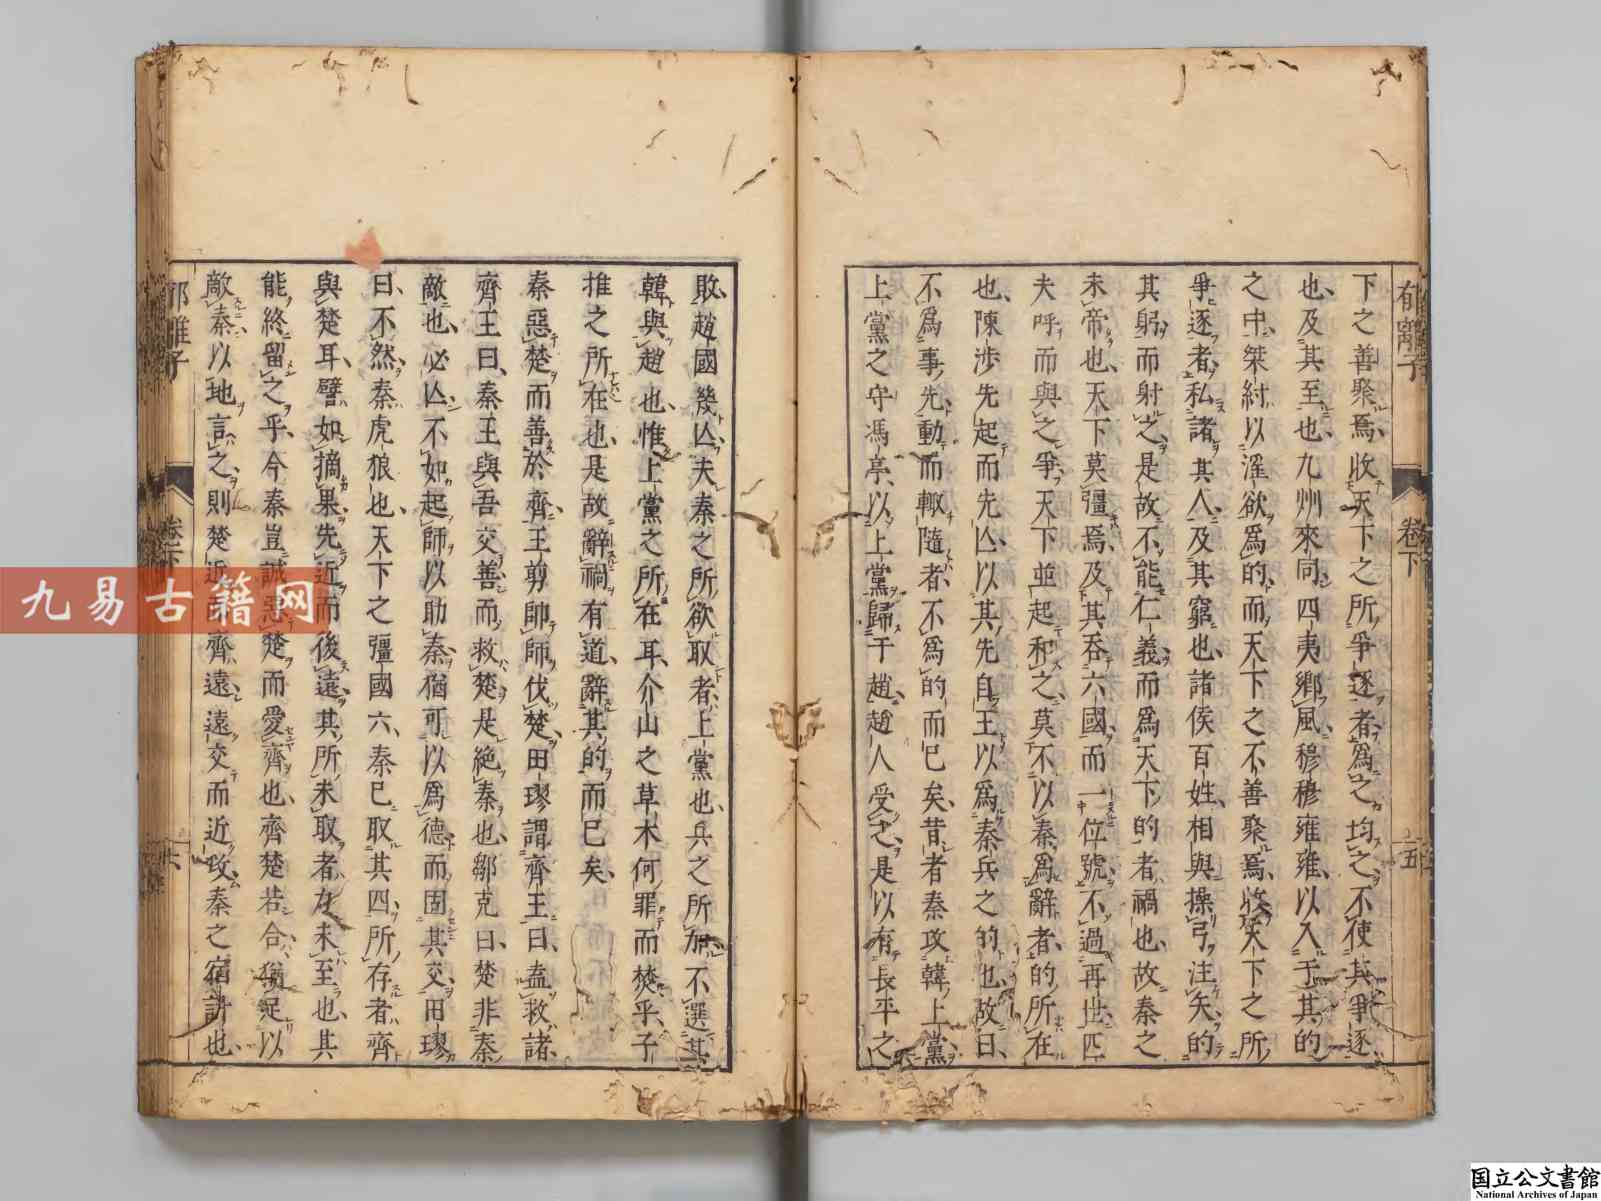 郁離子 卷下 五
下之善聚焉、收天下之所爭逐者、爲之均之、不使其爭逐
也、及其至也、九州來同、四夷鄉風、穆穆雍雍、以入于其的
之中、桀紂以淫欲爲的、而天下之不善聚焉、收天下之所
爭逐者、私諸其人、及其窮也、諸侯百姓、相與操弓注矢的
其躬而射之、是故不能仁義而爲天下的者禍也、故秦之
未帝也、天下莫彊焉、及其吞六國而一位號、不過再世、匹
夫呼而與之爭、天下並起和之、莫不以秦爲辭者、的所在
也、陳涉先起而先亾、以其先自王以爲秦兵之的也、故曰、
不爲事先、動而輙隨者、不爲的而已矣、昔者秦攻韓上黨、
上黨之守馮亭、以上黨歸于趙、趙人受之、是以有長平之
敗、趙國幾亾、夫秦之所欲取者、上黨也、兵之所加、不選其
韓與趙也、惟上黨之所在耳、介山之草木何罪而焚乎、子
推之所在也、是故辭禍有道、辭其的而已矣、
秦惡楚而善於齊、王翦帥師伐楚、田璆謂齊王曰、盍救諸、
齊王曰、秦王與吾交善、而救楚、是絶秦也、鄒克曰、楚非秦
敵也、必亾、不如起師以助秦、猶可以爲德而固其交、田璆
曰、不然、秦虎狼也、天下之彊國六、秦已取其四、所存者齊
與楚耳、譬如摘果、先近而後遠、其所未取者、力未至也、其
能終留之乎、今秦豈誠惡楚而愛齊也、齊楚若合、猶足以
敵秦、以地言之、則楚近而齊遠、遠交而近攻、秦之宿計也、
郁離子 卷下 六
九易古籍网
国立公文書館
National Archives of Japan